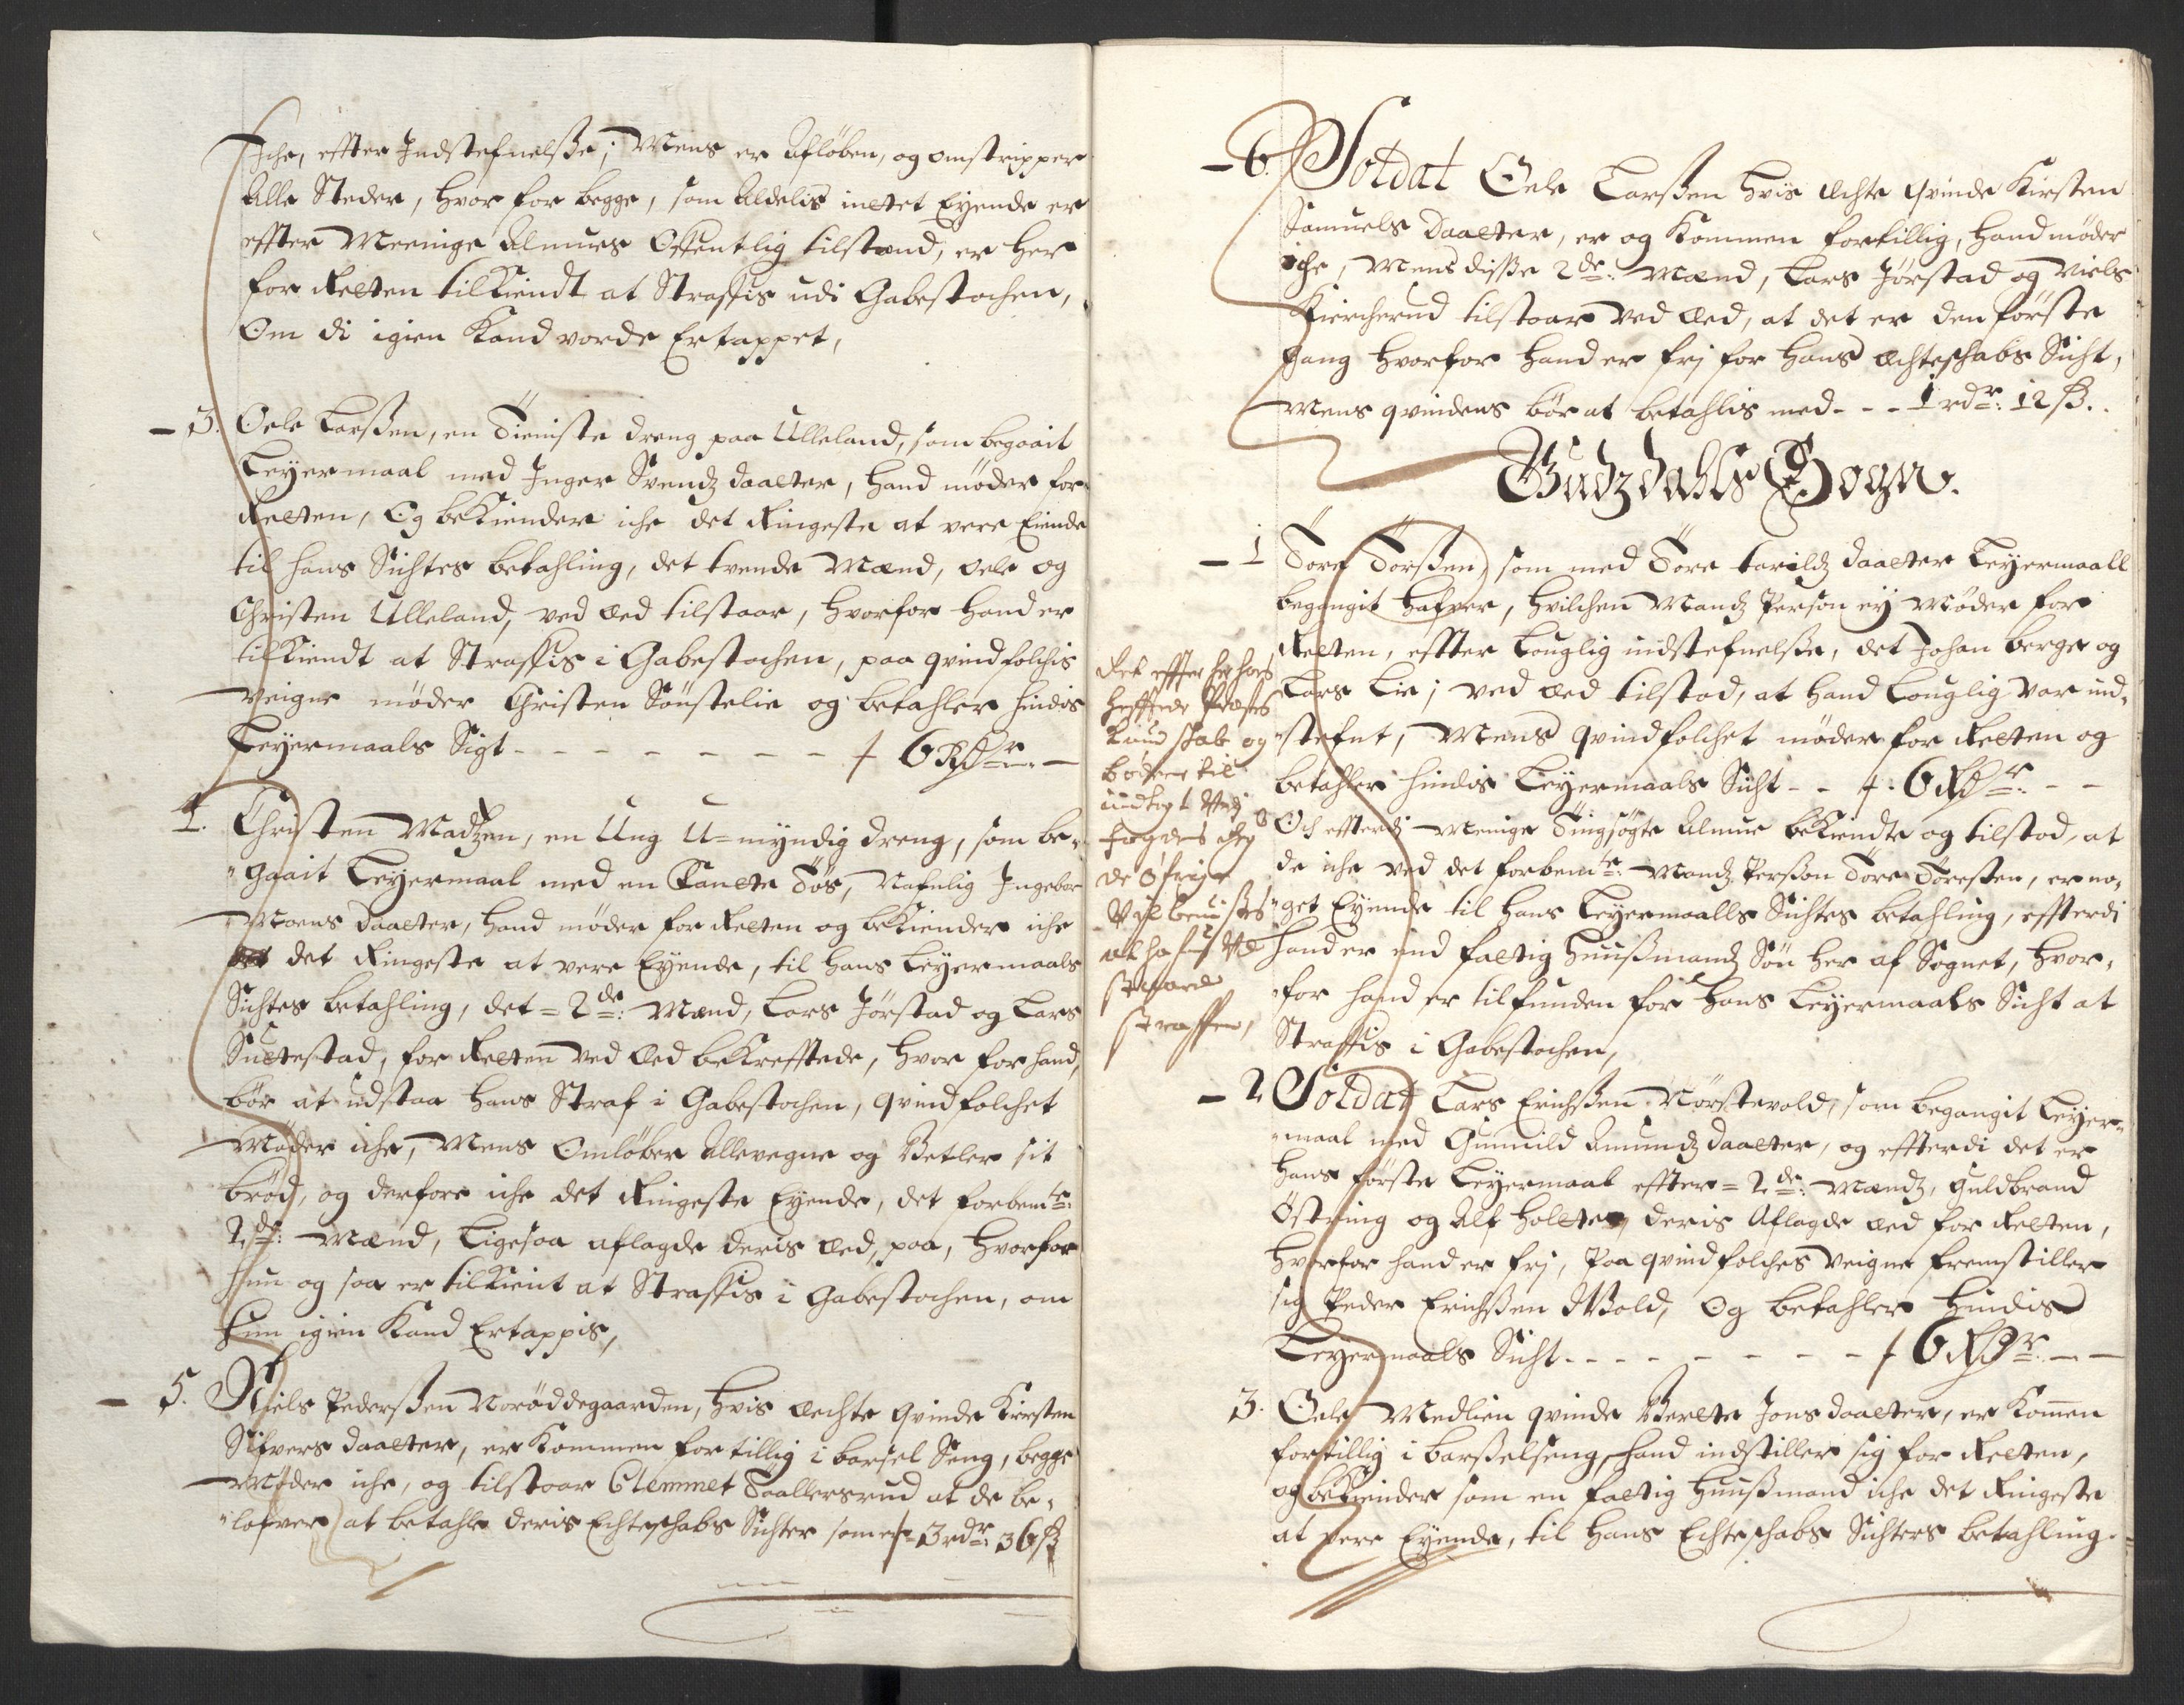 Iche, effter Indstefnelsße; Mens er Afløben, og omstripper
Alle Steder, hvor for begge, som Aldelis intet Eyende er
effter Meenige Almues Offentlig tilstand, er her
for Retten tilkiendt at Straffis udi Gabestochen,
Om di igien kand vorde Ertappet,
3. Oele Larsßen, en Tieniste dreng paa Ulleland, som begaait
Leyermaal med Inger Svendz daatter, hand møder for
Retten, Og bekiender iche det Ringeste at vere Eiende
til hans Sichtes betahling, det tvende Mænd, oele og
Christen Ulleland, ved æd tilstaar, hvorfor hand er
tilkiendt at Straffis i Gabestochen, paa qvindfolchis
veigne møder Christen Sønstelie og betahler hindis
Leyermaals Sigt - - - - - - - - 6 Rdr: —
4. Christen Madtzen, en Ung U=myndig dreng, som be-
gaait Leyermaal med en Tante Tøs, Nafnlig Ingebor
Moens daatter, hand møder for Retten og bekiender iche
det Ringeste at vere Eyende, til hans Leyermaals
Sichtes betahling, det = 2de: Mænd, Lars Jørstad og Lars
Sultestad, for Retten ved æd bekrefftede, hvor for hand,
bør at udstaa hans Straf i Gabestochen, qvindfolchet
Møder iche, Mens Omløber Allevegne og Betler sit
brød, og derfore iche det Ringeste Eyende, det forbemte:
2de: Mænd, Ligesaa aflagde deris æd, paa, hvorfor
hun og saa er tilkient at Straffis i Gabestochen, om
hun igien kand Ertappis,
5. Niels Pedersßen Norøddegaarden, hvis æchte qvinde Kirsten
Sifvers daatter, er kommen for tillig i barsel Seng, begge
Møder iche, og tilstaar Clemmet Taallersrud at de be-
lofver at betahle deris Echteschabs Sichter som er 3 rdr: 36 ß
6. Soldat Oele Larsßen hvis æchte qvinde Kirsten
Samuels daatter, er og kommen fortillig, hand møder
iche, Mens disße 2de: Mænd, Lars Jørstad og Niels
Kiercherud tilstaar ved æd, at det er den første
gang hvorfor hand er frj for hans æchteschabs Sicht,
Mens qvindens bør at betahlis med - - - 1 rdr: 12 ß.
Gudzdahls Sogn.
1 Tore Torsßen som med Tore tarildz daatter Leyermaall
begangit hafver, hvilchen Mandz Person ey Møder for
Retten, effter Louglig indstefnelsße, det Johan berge og
Lars Lie; ved æd tilstod, at hand Louglig var ind-
stefnt, Mens qvindfolchet møder for Retten og
betahler hindis Leyermaals Sicht - - 6 Rdr: - -
Och efftersom Menige Tingsøgte Almue bekiendte og tilstod, at
de iche ved det forbemte: Mandz Person Tore Toresßen, er no-
get Eyende til hans Leyermaalls Sichtes betahling, effterdi
hand er end fattig huusßmandz Søn her af Sognet, hvor-
for hand er tilfunden for hans Leyermaals Sicht at
Straffis i Gabestochen,
Ret effter
hefftede
kundschab og
bødere til
indtegt
fogdes
de øfrige
straffen,
2 Soldat Lars Erichsßen Nørstevold, som begangit Leyer-
maal med Gunnild Amundz daatter, og effterdi det er
hans første Leyermaal effter = 2de: Mændz, Guldbrand
Østring og Alf Holter, deris Aflagde æd for Retten,
hvorfor hand er frj, Paa qvindfolches veigne fremstiller
sig Peder Erichsßen Wold, Og betahler hindis
Leyermaals Sicht - - - - - - - - 6 Rdr: —
3. Oele Medlien qvinde Berette Jons daatter, er kommen
fortillig i barsßelseng, hand indstiller sig for Retten,
og bekiender som en fattig huusßmand iche det Ringeste
at vere Eyende, til hans Echteschabs Sichters betahling